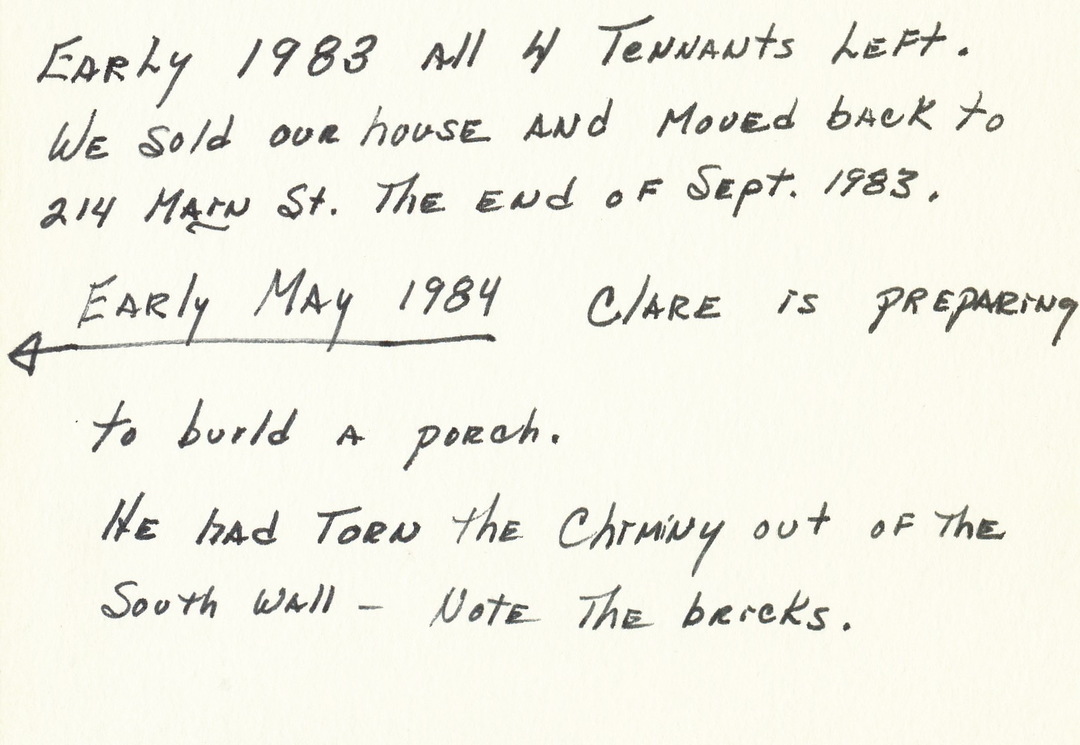 Early 1983 all 4 Tennants Left.
We sold our house and Moved back to
214 Main St. The end of Sept. 1983.
Early May 1984 Clare is preparing
to build a porch.
He had Torn the Chiminy out of The
South Wall - Note The bricks.